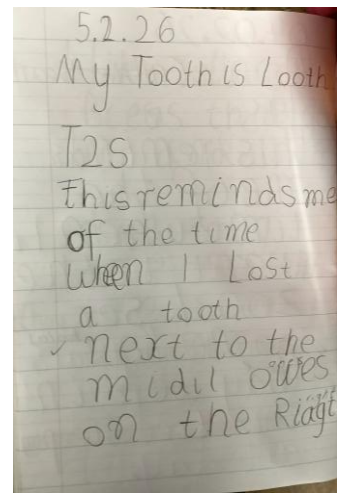 5.2.26
My Tooth is Looth
T2S
this reminds me
of the time
when I Lost
a tooth
next to the
midil owes
on the Riagt